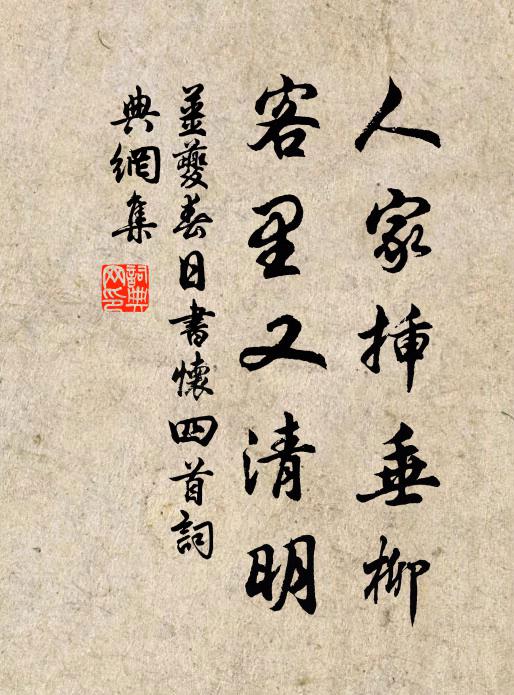 人家插垂柳
客里又清明
姜夔春日書懷四首詞
典網集
詞典網印